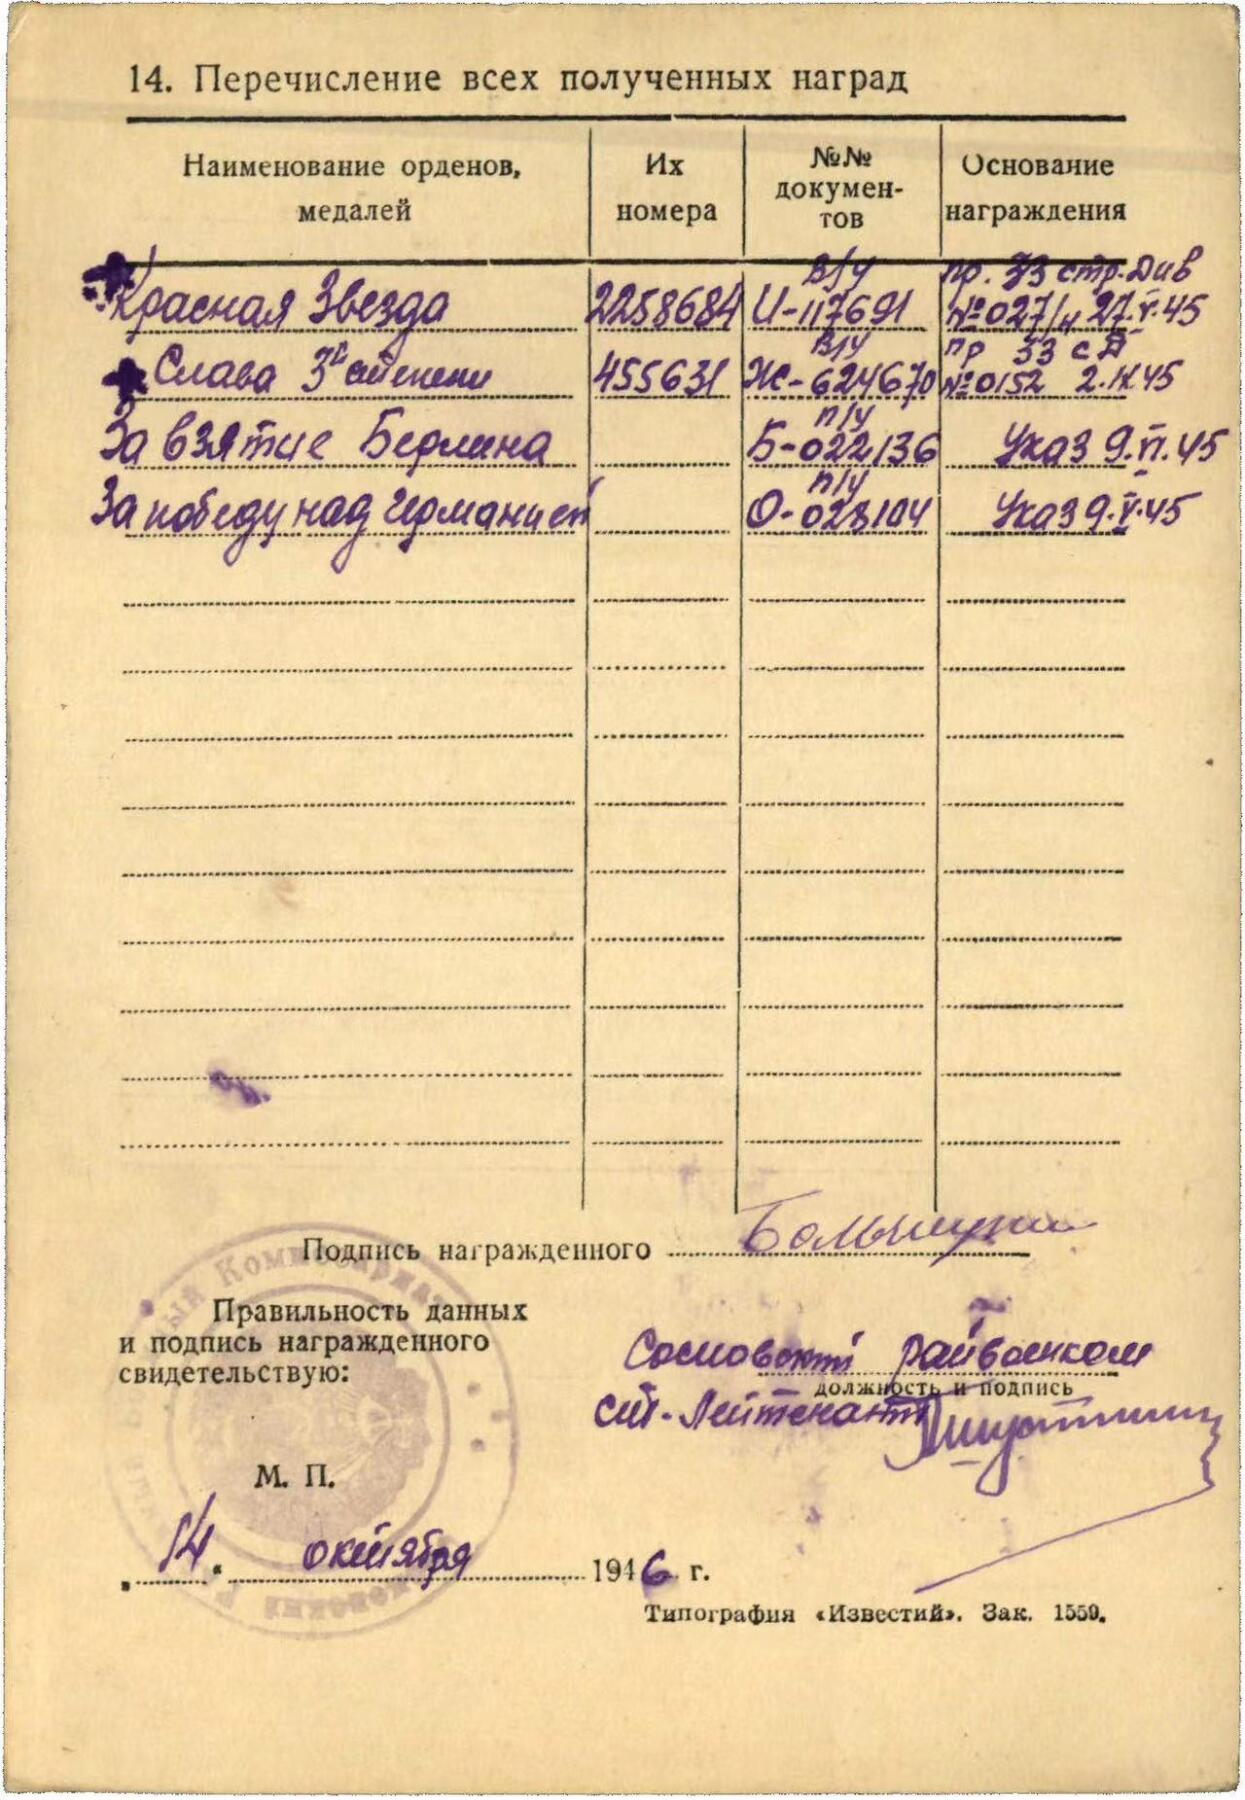 14. Перечисление всех полученных наград
Наименование орденов, медалей
Их номера
№№ документов
Основание награждения
Красная Звезда 2258684 в/у И-117691 пр. 33 стр. Див №027/н 27.V.45
Слава 3й степени 455631 в/у Ж-624670 пр 33 с д №0152 2.IV.45
За взятие Берлина п/у Б-022136 Указ 9.VI.45
За победу над Германией п/у О-028104 Указ 9.V.45
Подпись награжденного
Правильность данных
и подпись награжденного
свидетельствую:
Сосновский райвоенком
должность и подпись
ст. Лейтенант
М. П.
„14“ октября 1946 г.
Типография «Известий». Зак. 1559.